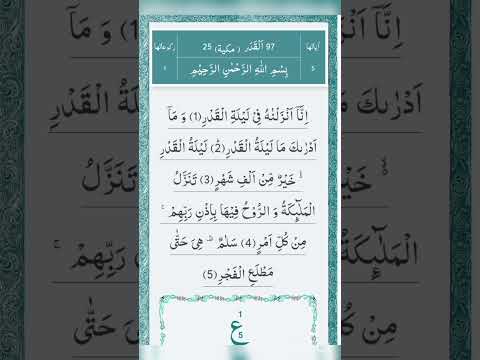 اٰیاتها 97 اَلْقَدَر ( مکیة) 25 رکوعاتها
5 بِسْمِ اللّٰهِ الرَّحْمٰنِ الرَّحِیْمِ 1
اِنَّاۤ اَنْزَلْنٰهُ فِیْ لَیْلَةِ الْقَدْرِ(1) وَ مَاۤ
اَدْرٰىكَ مَا لَیْلَةُ الْقَدْرِ(2) لَیْلَةُ الْقَدْرِ
ﳔ خَیْرٌ مِّنْ اَلْفِ شَهْرٍ(3) تَنَزَّلُ
الْمَلٰٓىٕكَةُ وَ الرُّوْحُ فِیْهَا بِاِذْنِ رَبِّهِمْ ۚ
مِنْ كُلِّ اَمْرٍ(4) سَلٰمٌ ﱡ هِیَ حَتّٰى
مَطْلَعِ الْفَجْرِ(5)
1
ع
5